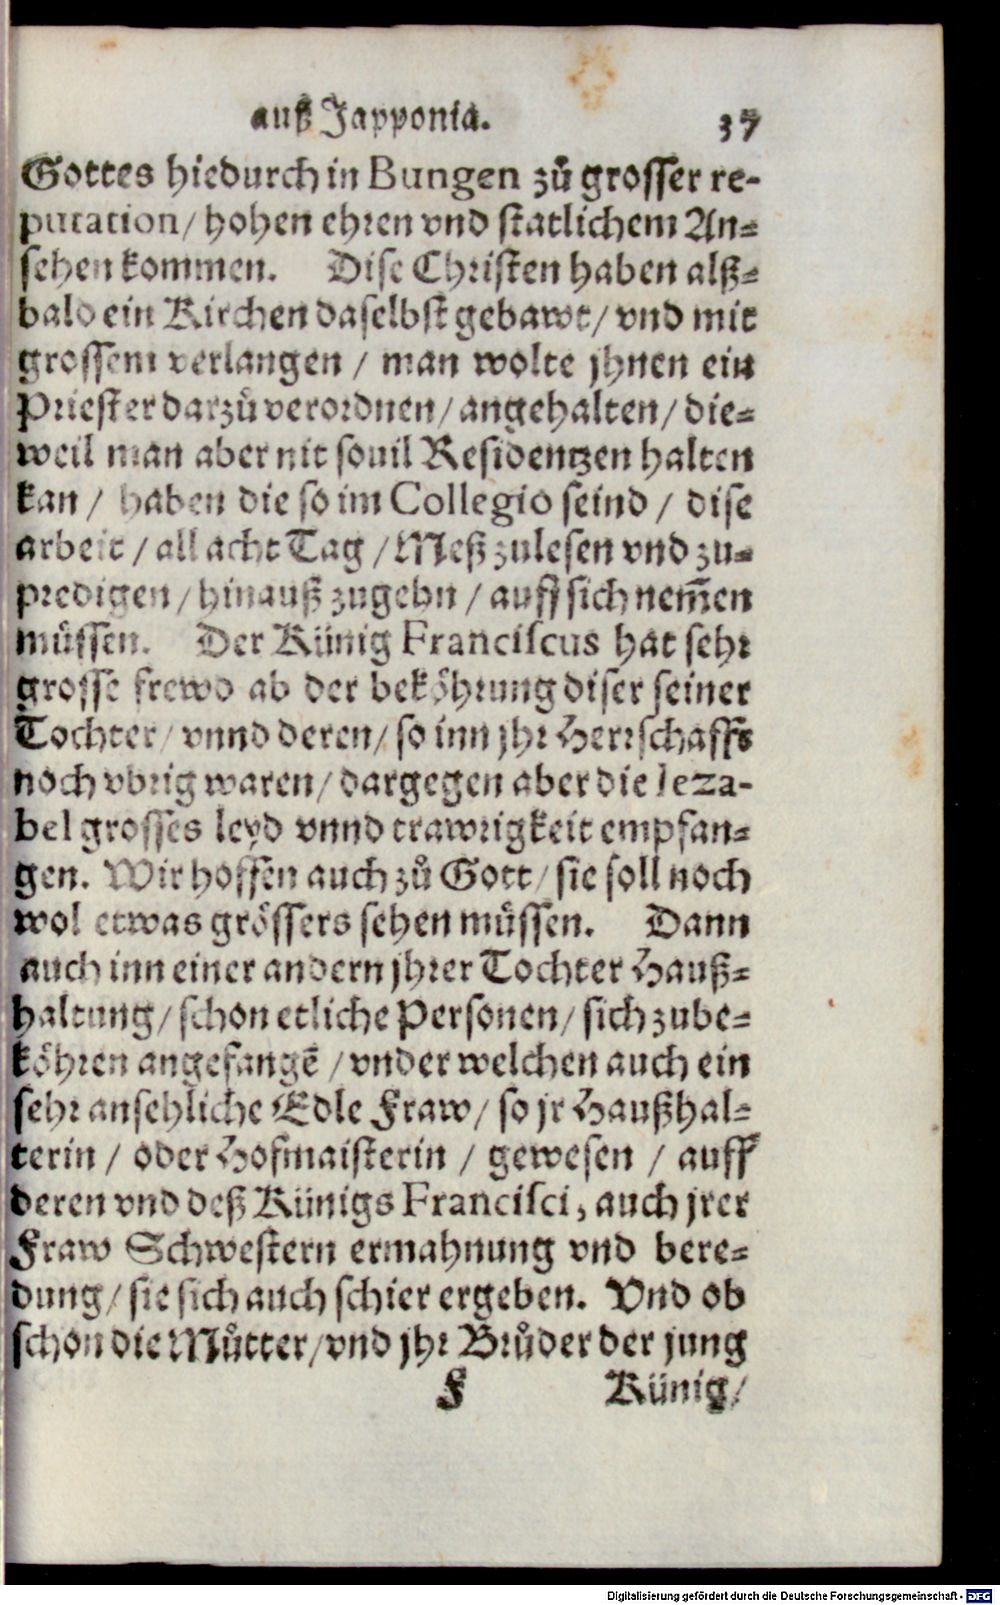 auß Japponia. 37
Gottes hiedurch in Bungen zů grosser re-
putation / hohen ehren vnd statlichem An-
sehen kommen. Dise Christen haben alß-
bald ein Kirchen daselbst gebawt / vnd mit
grossem verlangen / man wolte jhnen ein
Priester darzů verordnen / angehalten / die-
weil man aber nit souil Residentzen halten
kan / haben die so im Collegio seind / dise
arbeit / all acht Tag / Meß zulesen vnd zu-
predigen / hinauß zugehn / auff sich nem̃en
müssen. Der Künig Franciscus hat sehr
grosse frewd ab der beköhrung diser seiner
Tochter / vnnd deren / so inn jhr Herrschafft
noch vbrig waren / dargegen aber die Ieza-
bel grosses leyd vnnd trawrigkeit empfan-
gen. Wir hoffen auch zů Gott / sie soll noch
wol etwas grössers sehen müssen. Dann
auch inn einer andern jhrer Tochter Hauß-
haltung / schon etliche Personen / sich zube-
köhren angefangẽ / vnder welchen auch ein
sehr ansehliche Edle Fraw / so jr Haußhal-
terin / oder Hofmaisterin / gewesen / auff
deren vnd deß Künigs Francisci, auch jrer
Fraw Schwestern ermahnung vnd bere-
dung / sie sich auch schier ergeben. Vnd ob
schon die Můtter / vnd jhr Brůder der jung
F Künig /
Digitalisierung gefördert durch die Deutsche Forschungsgemeinschaft - DFG